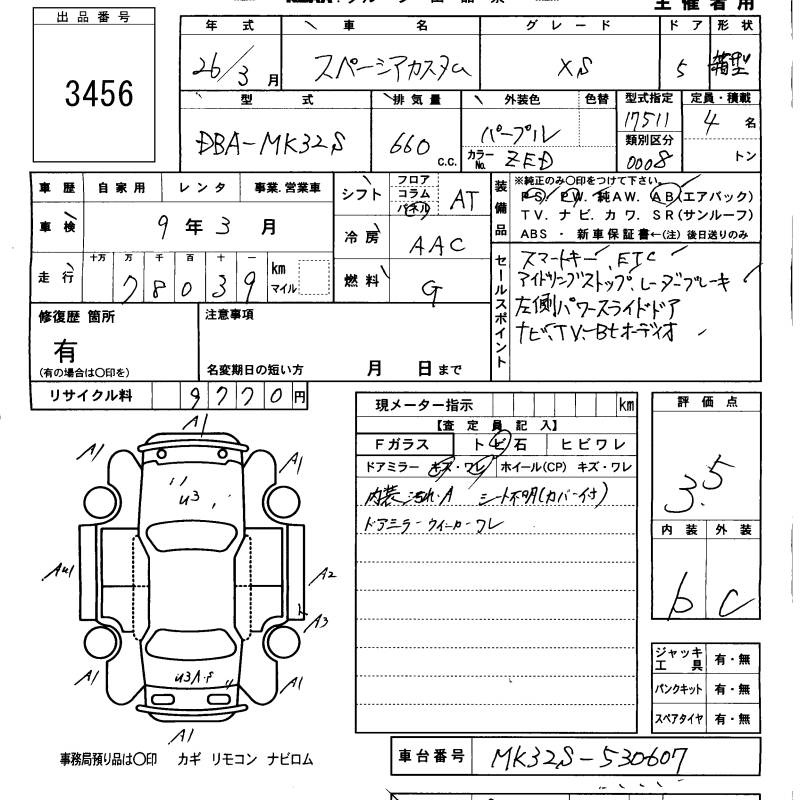 主催者用
出品番号
3456
年式 車名 グレード ドア 形状
26/3月 スペーシアカスタム XS 5 箱型
型式 排気量 外装色 色替 型式指定 定員・積載
DBA-MK32S 660 c.c. パープル 17511 4名
カラーNo. ZED 類別区分 0008 トン
車歴 自家用 レンタ 事業.営業車
車検 9年3月
走行 十万 万 千 百 十 一 km マイル
78039
シフト フロア コラム パネル AT
冷房 AAC
燃料 G
装備品
※純正のみ〇印をつけて下さい。
PS. PW. 純AW. AB(エアバック)
TV. ナビ. カワ. SR(サンルーフ)
ABS ・ 新車保証書←(注) 後日送りのみ
セールスポイント
スマートキー、ETC
アイドリングストップ、レーダーブレーキ
左側パワースライドドア
ナビ、TV、Btオーディオ
修復歴 箇所
有
(有の場合は〇印を)
注意事項
名変期日の短い方 月 日まで
リサイクル料 9770円
現メーター指示 km
【査定員記入】
Fガラス トビ石 ヒビワレ
ドアミラー キズ・ワレ ホイール(CP) キズ・ワレ
内装汚れ・A シート不明(カバー付)
ドアミラーウィンカーワレ
評価点
3.5
内装 外装
b C
ジャッキ工具 有・無
パンクキット 有・無
スペアタイヤ 有・無
A1
A1
A1
U3
AU1
A2
A3
A1
A1
A1
事務局預り品は〇印 カギ リモコン ナビロム
車台番号 MK32S-530607